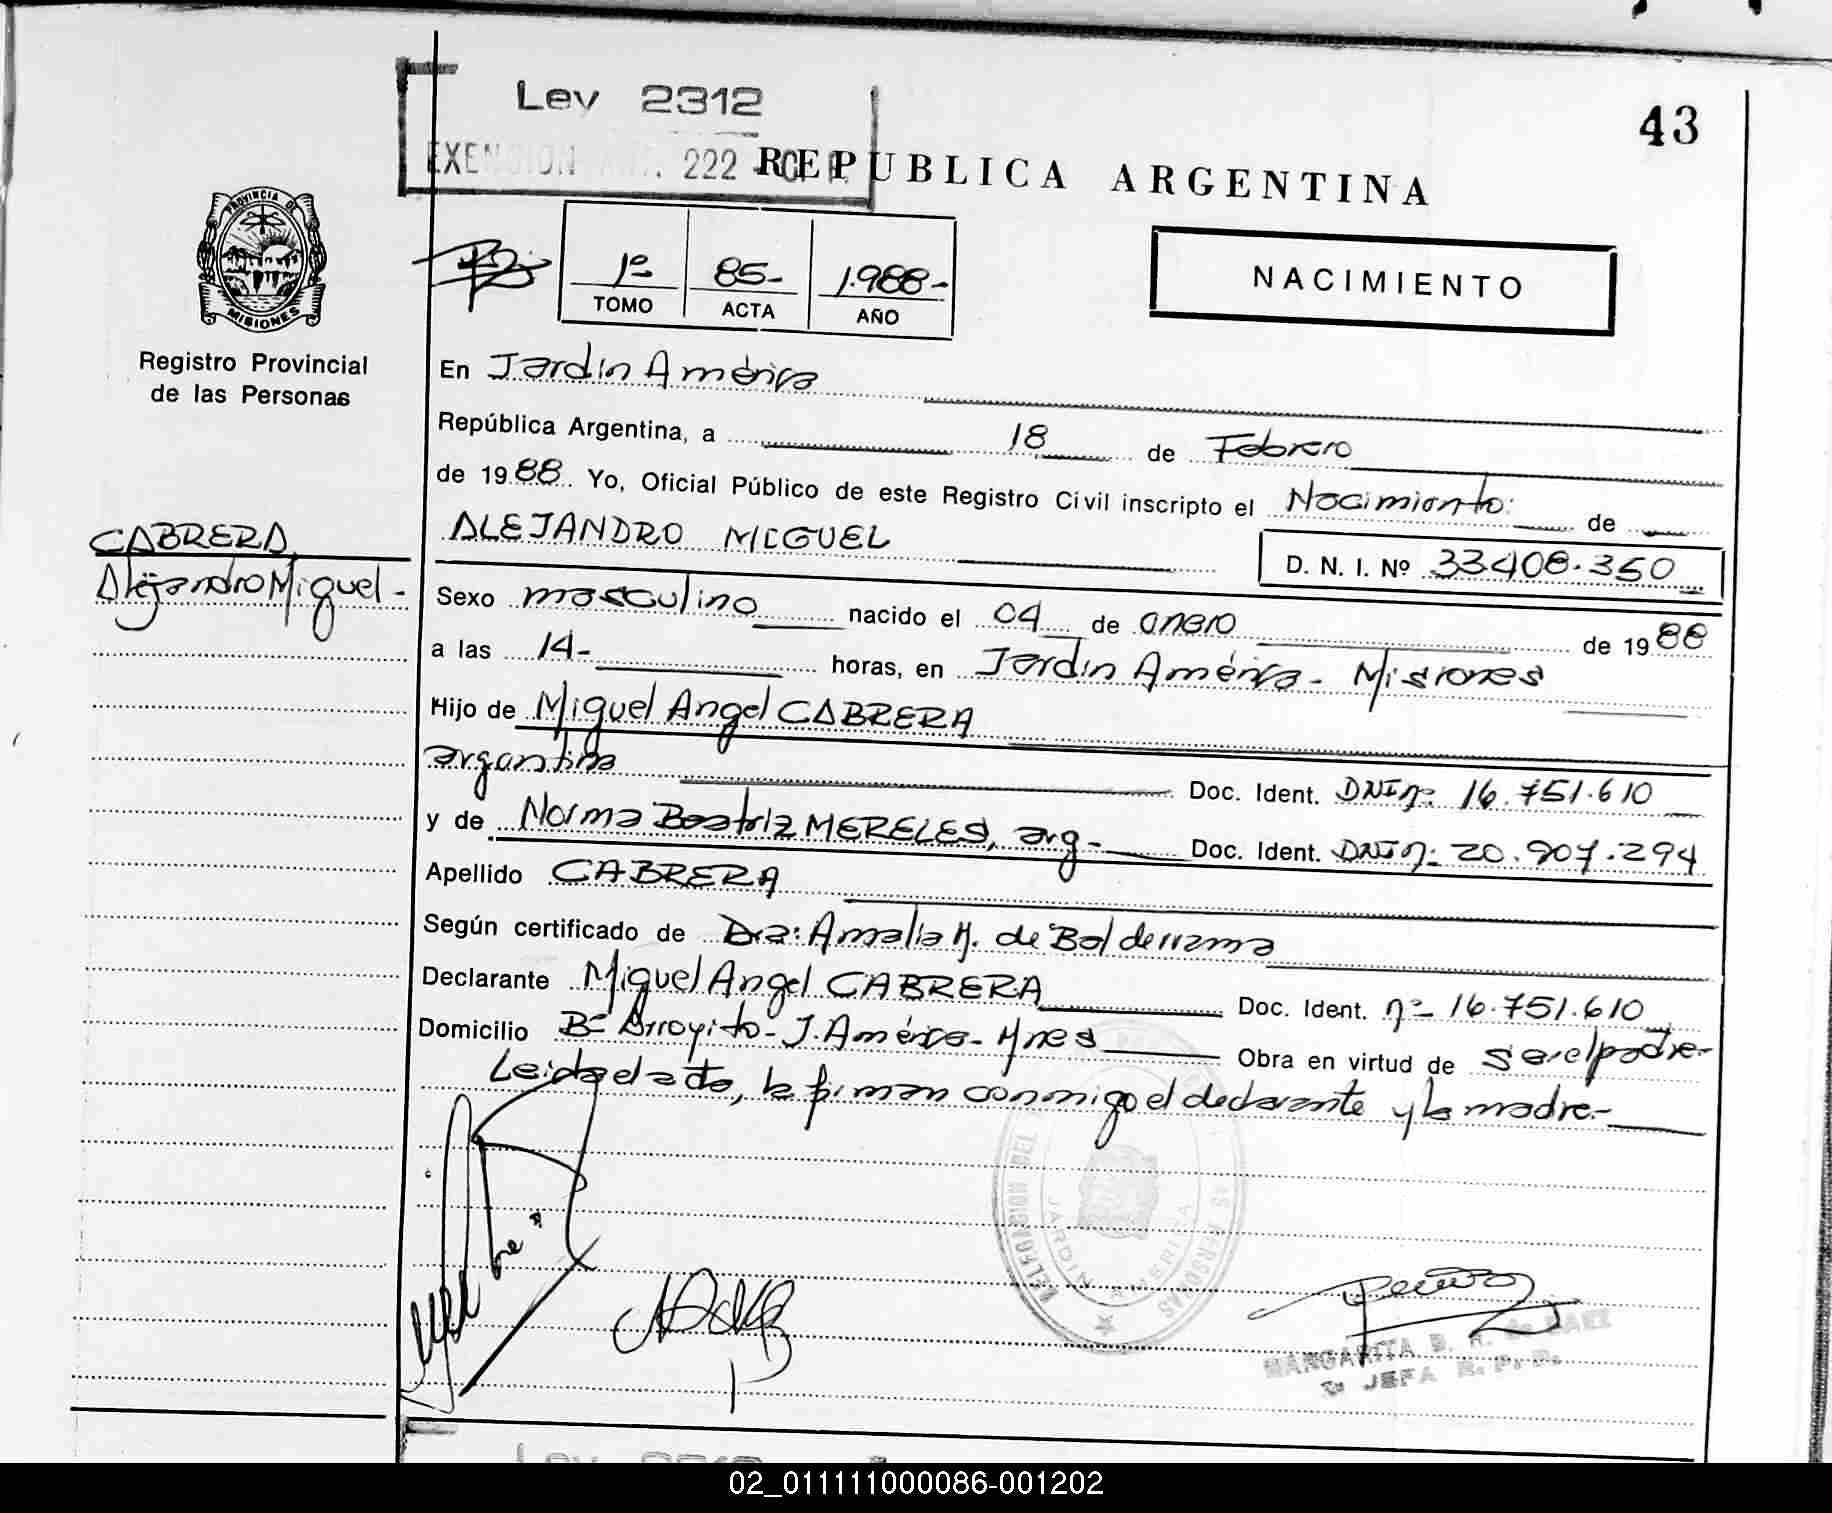 43
Ley 2312
EXENSION ART. 222
REPUBLICA ARGENTINA
PROVINCIA DE MISIONES
Registro Provincial
de las Personas
1º 85- 1.988-
TOMO ACTA AÑO
NACIMIENTO
En Jardín América
República Argentina, a 18 de Febrero
de 1988 Yo, Oficial Público de este Registro Civil inscripto el Nacimiento: de
ALEJANDRO MIGUEL D. N. I. Nº 33.408.350
CABRERA
Alejandro Miguel-
Sexo masculino nacido el 04 de enero de 1988
a las 14- horas, en Jardín América- Misiones
Hijo de Miguel Angel CABRERA
argentino Doc. Ident. DNI nº 16.751.610
y de Norma Beatriz MERELES, arg- Doc. Ident. DNI nº 20.907.294
Apellido CABRERA
Según certificado de Dra: Amalia M. de Balderrama
Declarante Miguel Angel CABRERA Doc. Ident. nº 16.751.610
Domicilio Bº Arroyito- J. América- Mnes Obra en virtud de ser el padre-
Leida el acta, la firman conmigo el declarante y la madre.-
DELEGACION DEL LAS PERSONAS
JARDIN AMERICA
MARGARITA B. R. de BAEZ
JEFA R. P. P.
02_011111000086-001202